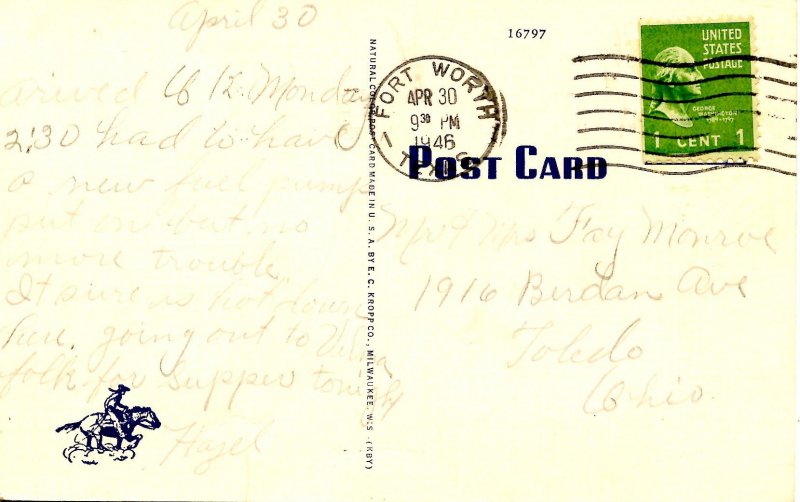 April 30
arived 6 12 Monday
2:30 had to have
a new fuel pump
put on but no
more trouble.
It sure is hot down
here. going out to Velma
folk for supper tonight
Hazel
NATURAL COLOR POST CARD MADE IN U. S. A. BY E. C. KROPP CO., MILWAUKEE, WIS. (KBY)
16797
FORT WORTH
APR 30
9 30 PM
1946
TEXAS
UNITED
STATES
POSTAGE
GEORGE
WASHINGTON
1789-1797
1 CENT 1
POST CARD
Mr & Mrs Fay Monroe
1916 Berdan Ave
Toledo
Ohio.